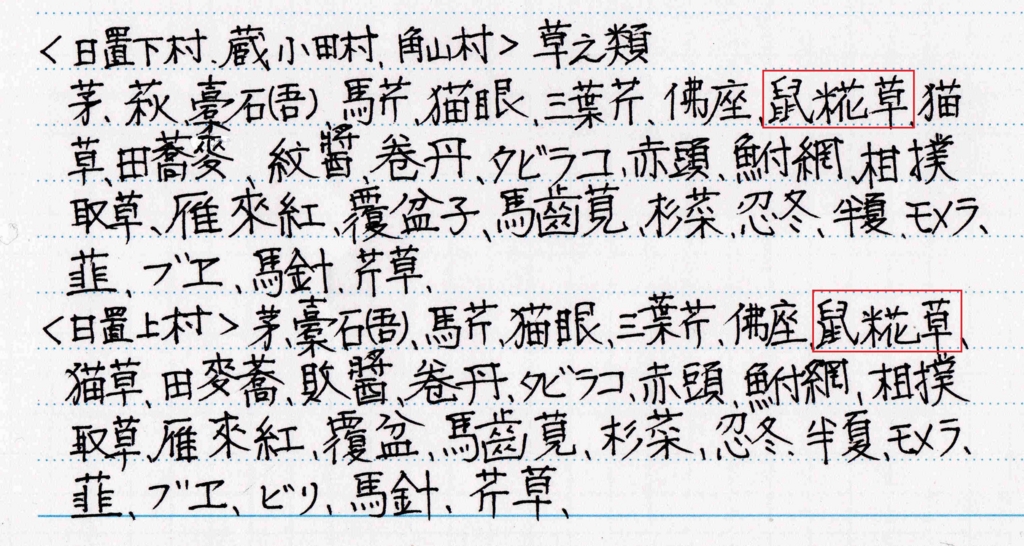 <日置下村、蔵小田村、角山村> 草之類
茅、萩、臺石(吾)、馬芹、猫眼、三葉芹、佛座、鼠糀草、猫
草、田蕎麥、紋醬、巻丹、タビラコ、赤頭、鮒網、相撲
取草、雁來紅、覆盆子、馬齒莧、杉菜、忍冬、半夏、モメラ、
韮、ブヱ、馬針、芹草、
<日置上村> 茅、臺石(吾)、馬芹、猫眼、三葉芹、佛座、鼠糀草、
猫草、田麥蕎、敗醬、巻丹、タビラコ、赤頭、鮒網、相撲
取草、雁來紅、覆盆、馬齒莧、杉菜、忍冬、半夏、モメラ、
韮、ブヱ、ビリ、馬針、芹草、